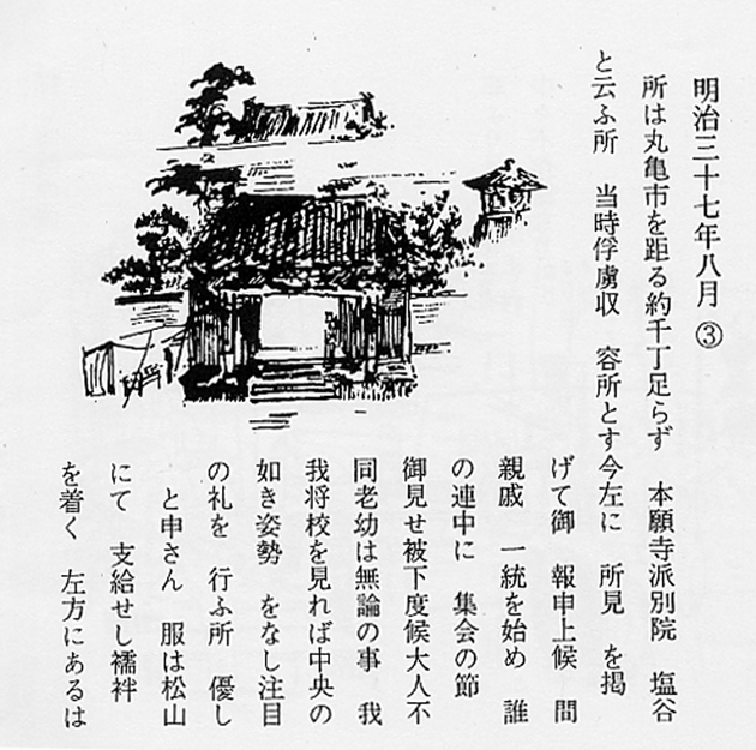 明治三十七年八月 ③
所は丸亀市を距る約千丁足らず 本願寺派別院 塩谷
と云ふ所 当時俘虜収 容所とす今左に 所見 を掲
げて御 報申上候 間
親戚 一統を始め 誰
の連中に 集会の節
御見せ被下度候大人不
同老幼は無論の事 我
我将校を見れば中央の
如き姿勢 をなし注目
の礼を 行ふ所 優し
と申さん 服は松山
にて 支給せし襦袢
を着く 左方にあるは